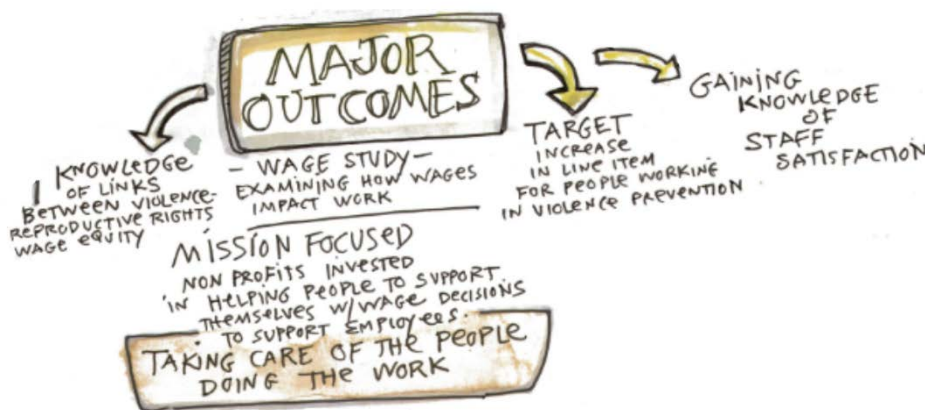 MAJOR
OUTCOMES
KNOWLEDGE
OF LINKS
BETWEEN VIOLENCE-
REPRODUCTIVE RIGHTS
WAGE EQUITY
- WAGE STUDY -
EXAMINING HOW WAGES
IMPACT WORK
TARGET
INCREASE
IN LINE ITEM
FOR PEOPLE WORKING
IN VIOLENCE PREVENTION
GAINING
KNOWLEDGE
OF
STAFF
SATISFACTION
MISSION FOCUSED
NON PROFITS INVESTED
IN HELPING PEOPLE TO SUPPORT
THEMSELVES W/WAGE DECISIONS
TO SUPPORT EMPLOYEES.
TAKING CARE OF THE PEOPLE
DOING THE WORK